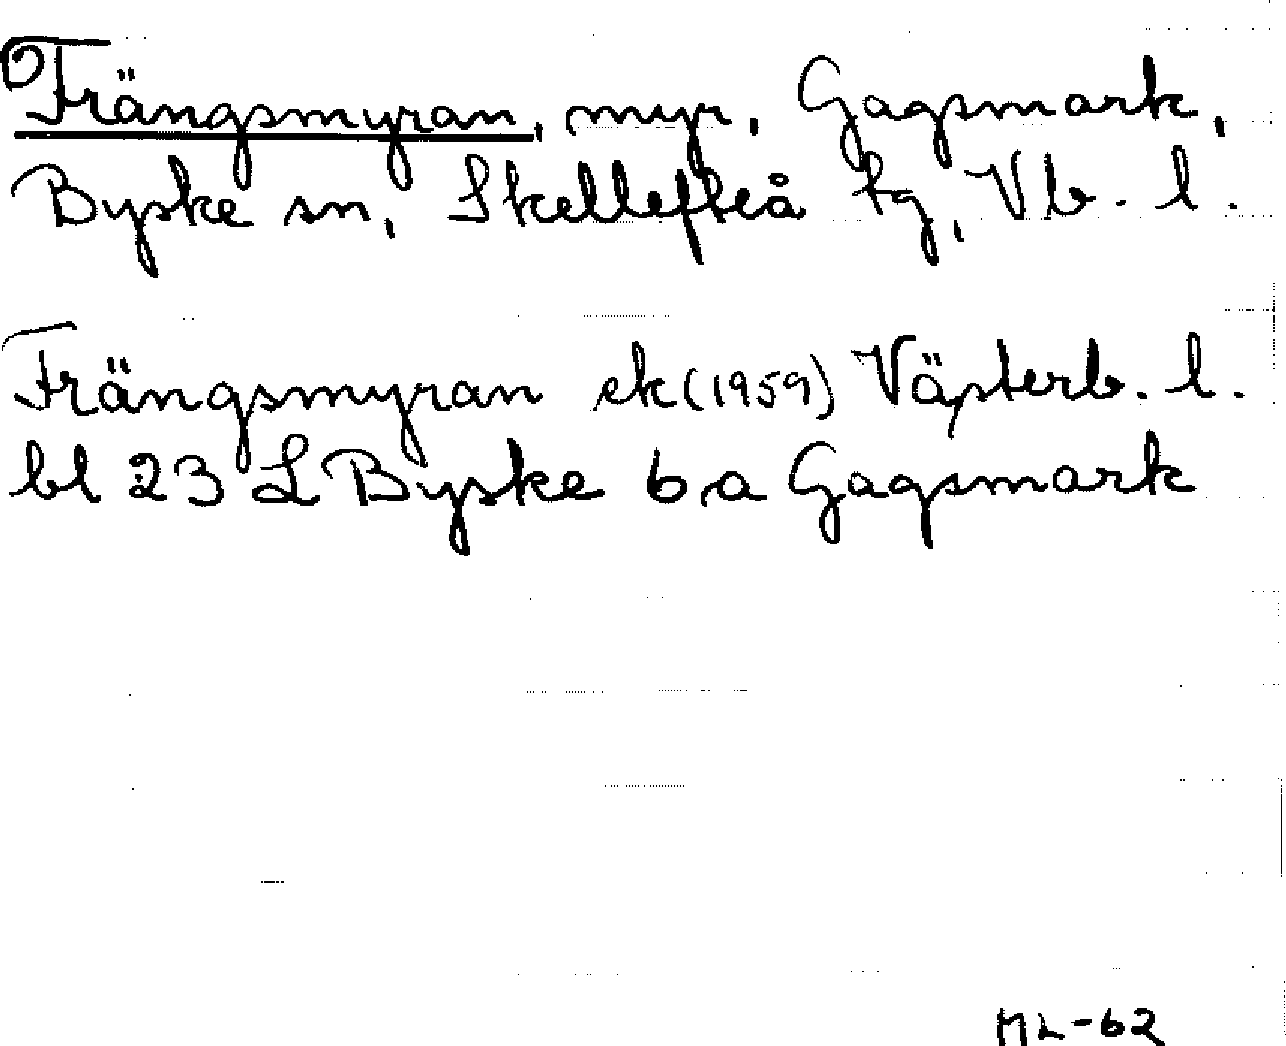 Trängsmyran, myr, Gagsmark,
Byske sn, Skellefteå tg, Vb. l.
Trängsmyran ek (1959) Västerb. l.
bl 23 L Byske 6 a Gagsmark
ML-62